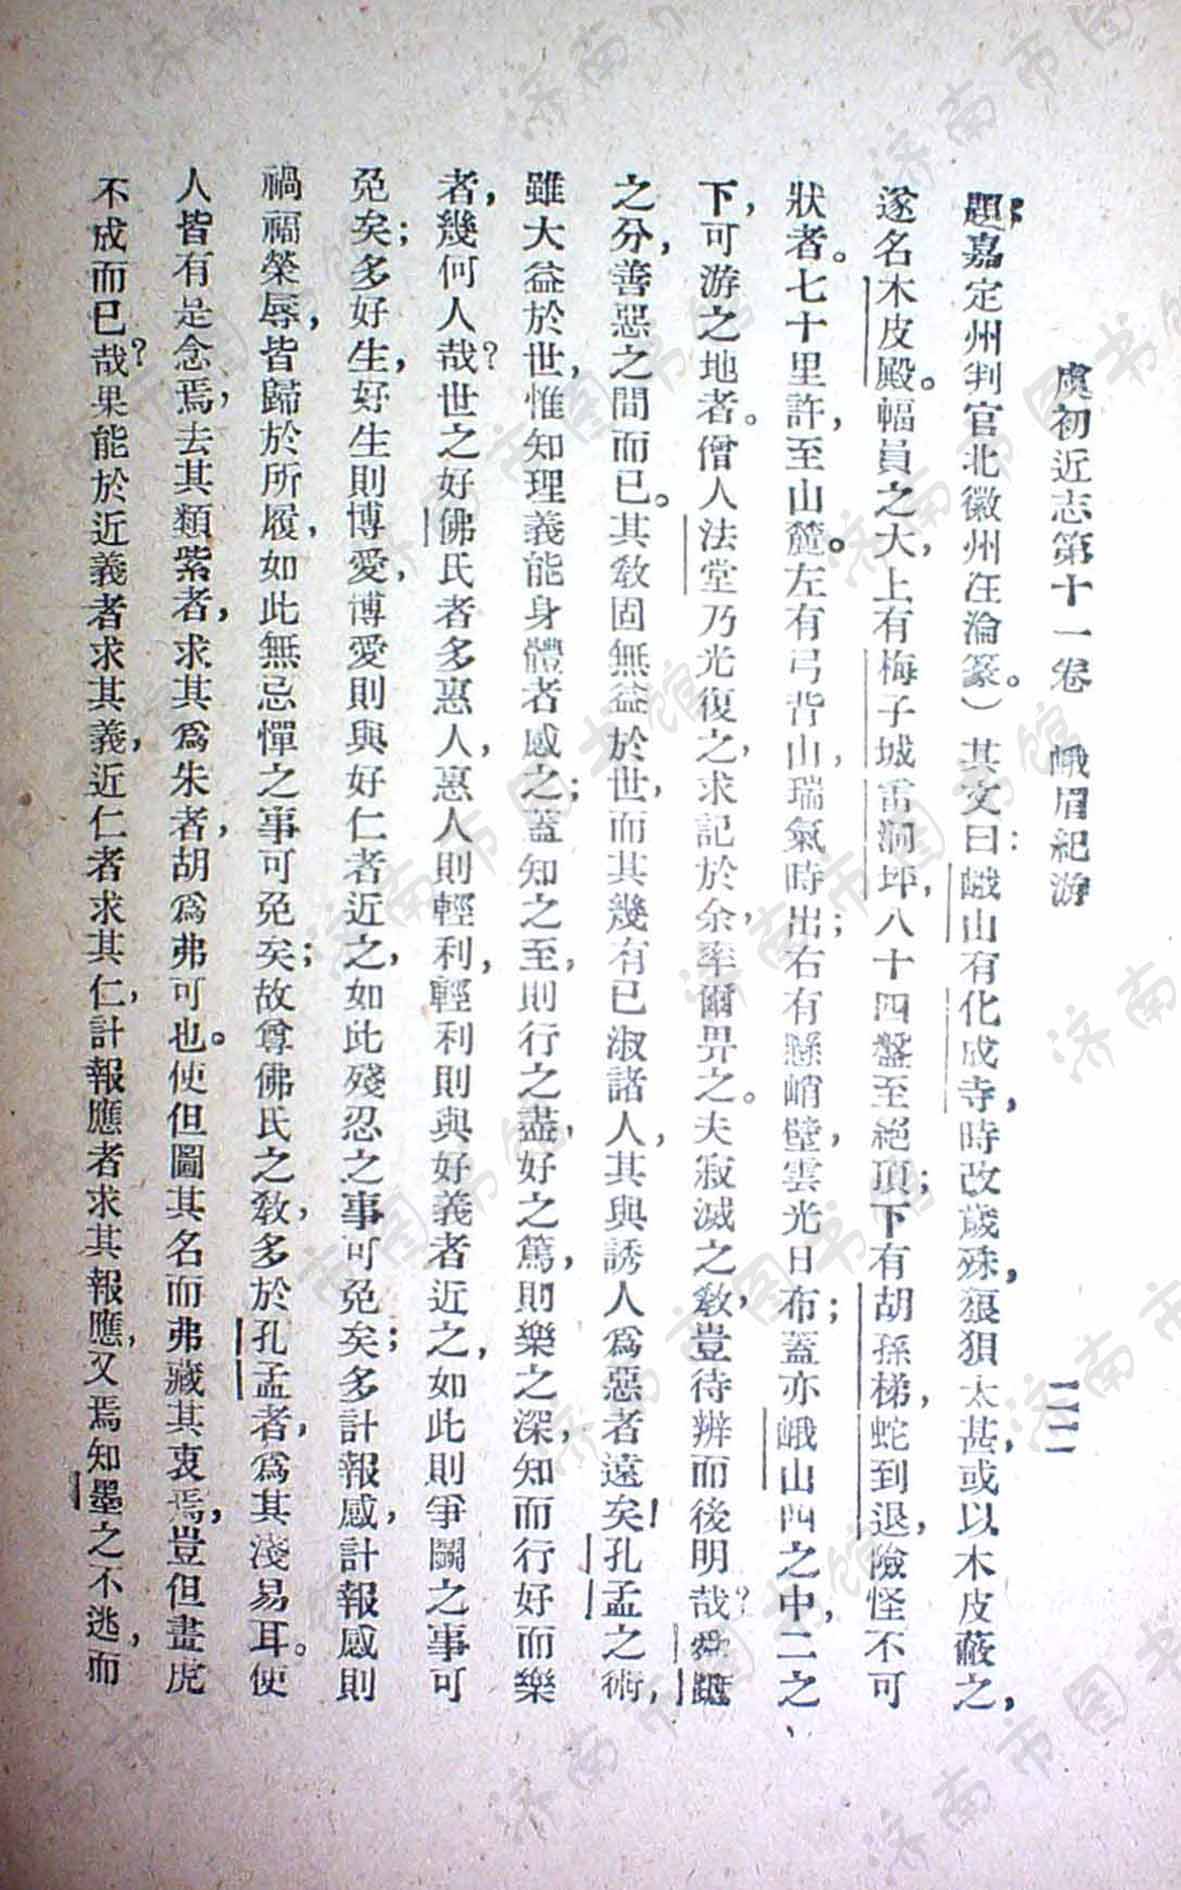 虞初近志第十一卷　峨眉紀游　二二
題;嘉定州判官北徽州汪淪篆。）其文曰:峨山有化成寺,時改歲殊,狼狽太甚,或以木皮蔽之,
遂名木皮殿。幅員之大,上有梅子城雷洞坪,八十四盤至絕頂;下有胡孫梯,蛇到退,險怪不可
狀者。七十里許,至山麓。左有弓背山,瑞氣時出;右有懸峭壁,雲光日布;蓋亦峨山四之中,二之、
下,可游之地者。僧人法堂乃光復之,求記於余,率爾畀之。夫寂滅之教,豈待辨而後明哉?舜蹠
之分,善惡之間而已。其教固無益於世,而其幾有已淑諸人,其與誘人爲惡者遠矣!孔孟之術,
雖大益於世,惟知理義能身體者感之;蓋知之至,則行之盡,好之篤,則樂之深,知而行好而樂
者,幾何人哉?世之好佛氏者多惠人,惠人則輕利,輕利則與好義者近之,如此則爭鬭之事可
免矣;多好生,好生則博愛,博愛則與好仁者近之,如此殘忍之事可免矣;多計報感,計報感則
禍福榮辱,皆歸於所履,如此無忌憚之事可免矣;故尊佛氏之教,多於孔孟者,爲其淺易耳。使
人皆有是念焉,去其類紫者,求其爲朱者,胡爲弗可也。使但圖其名而弗藏其衷焉,豈但畫虎
不成而已哉?果能於近義者求其義,近仁者求其仁,計報應者求其報應,又焉知墨之不逃,而
济南市图书馆